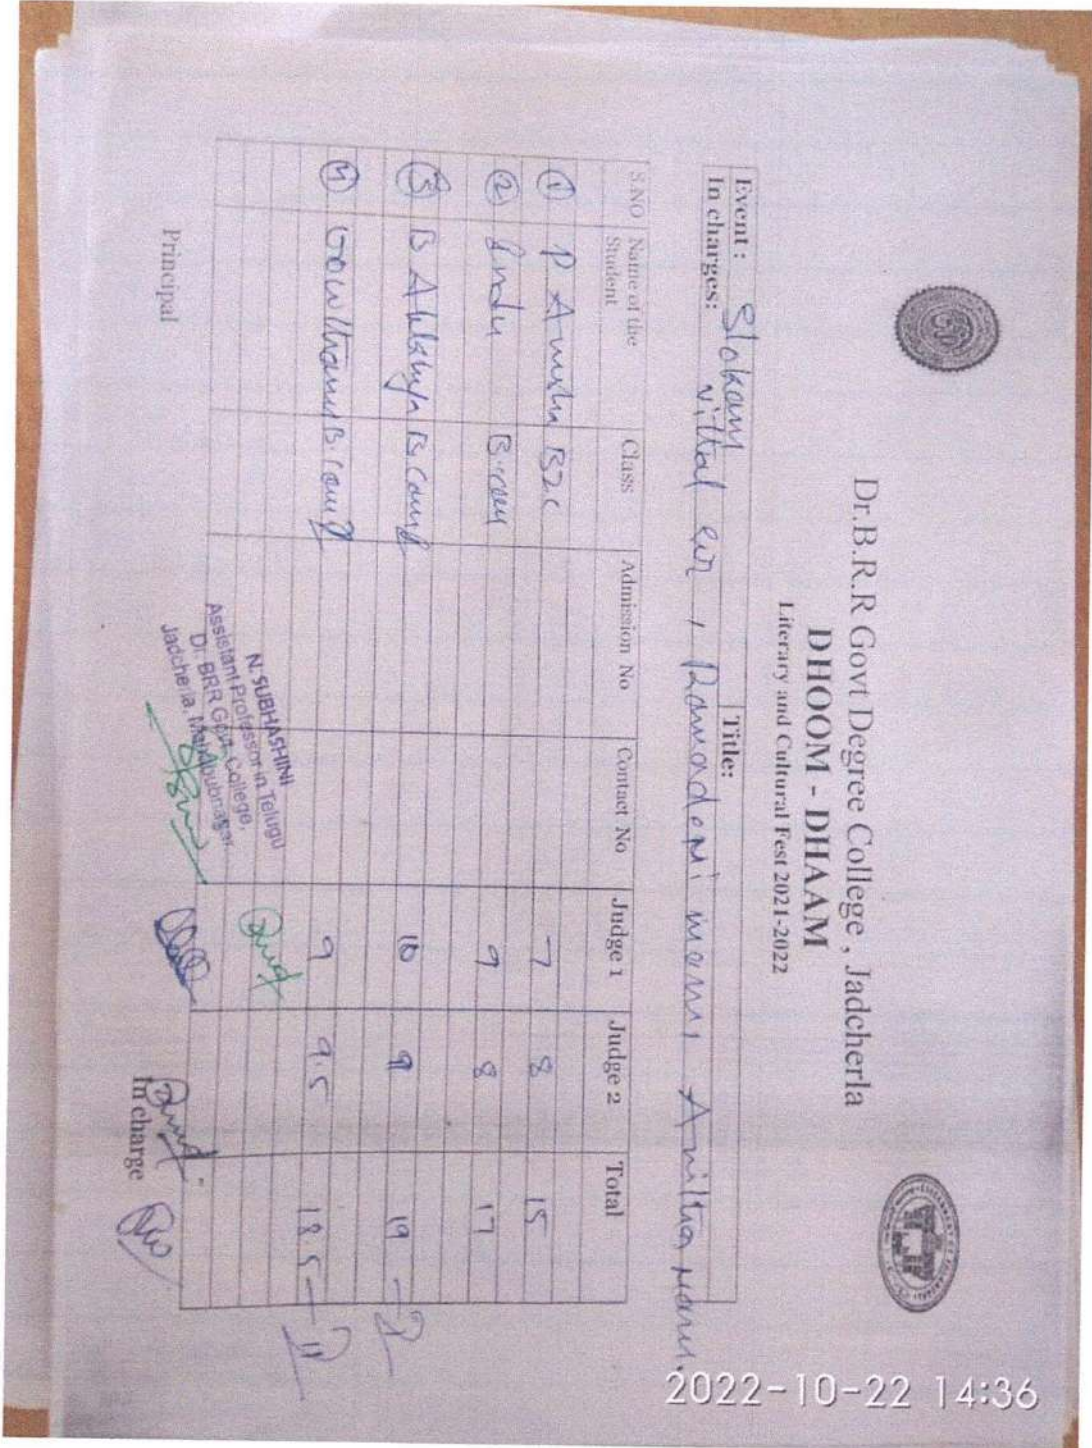 Dr.B.R.R Govt Degree College , Jadcherla
DHOOM - DHAAM
Literary and Cultural Fest 2021-2022
Event : Slokam Title:
In charges: Vittal sir , Ramadevi mam, Anitha mam.
S.NO Name of the Student Class Admission No Contact No Judge 1 Judge 2 Total
① P Anusha BZC 7 8 15
② Indu B.com 9 8 17
③ B Akhshya B.com 10 9 19 - I
④ Gowthami B.com 9 9.5 18.5 - II
N. SUBHASHINI
Assistant Professor in Telugu
Dr. BRR Govt. College,
Jadcherla, Mahabubnagar.
Principal In charge
2022-10-22 14:36